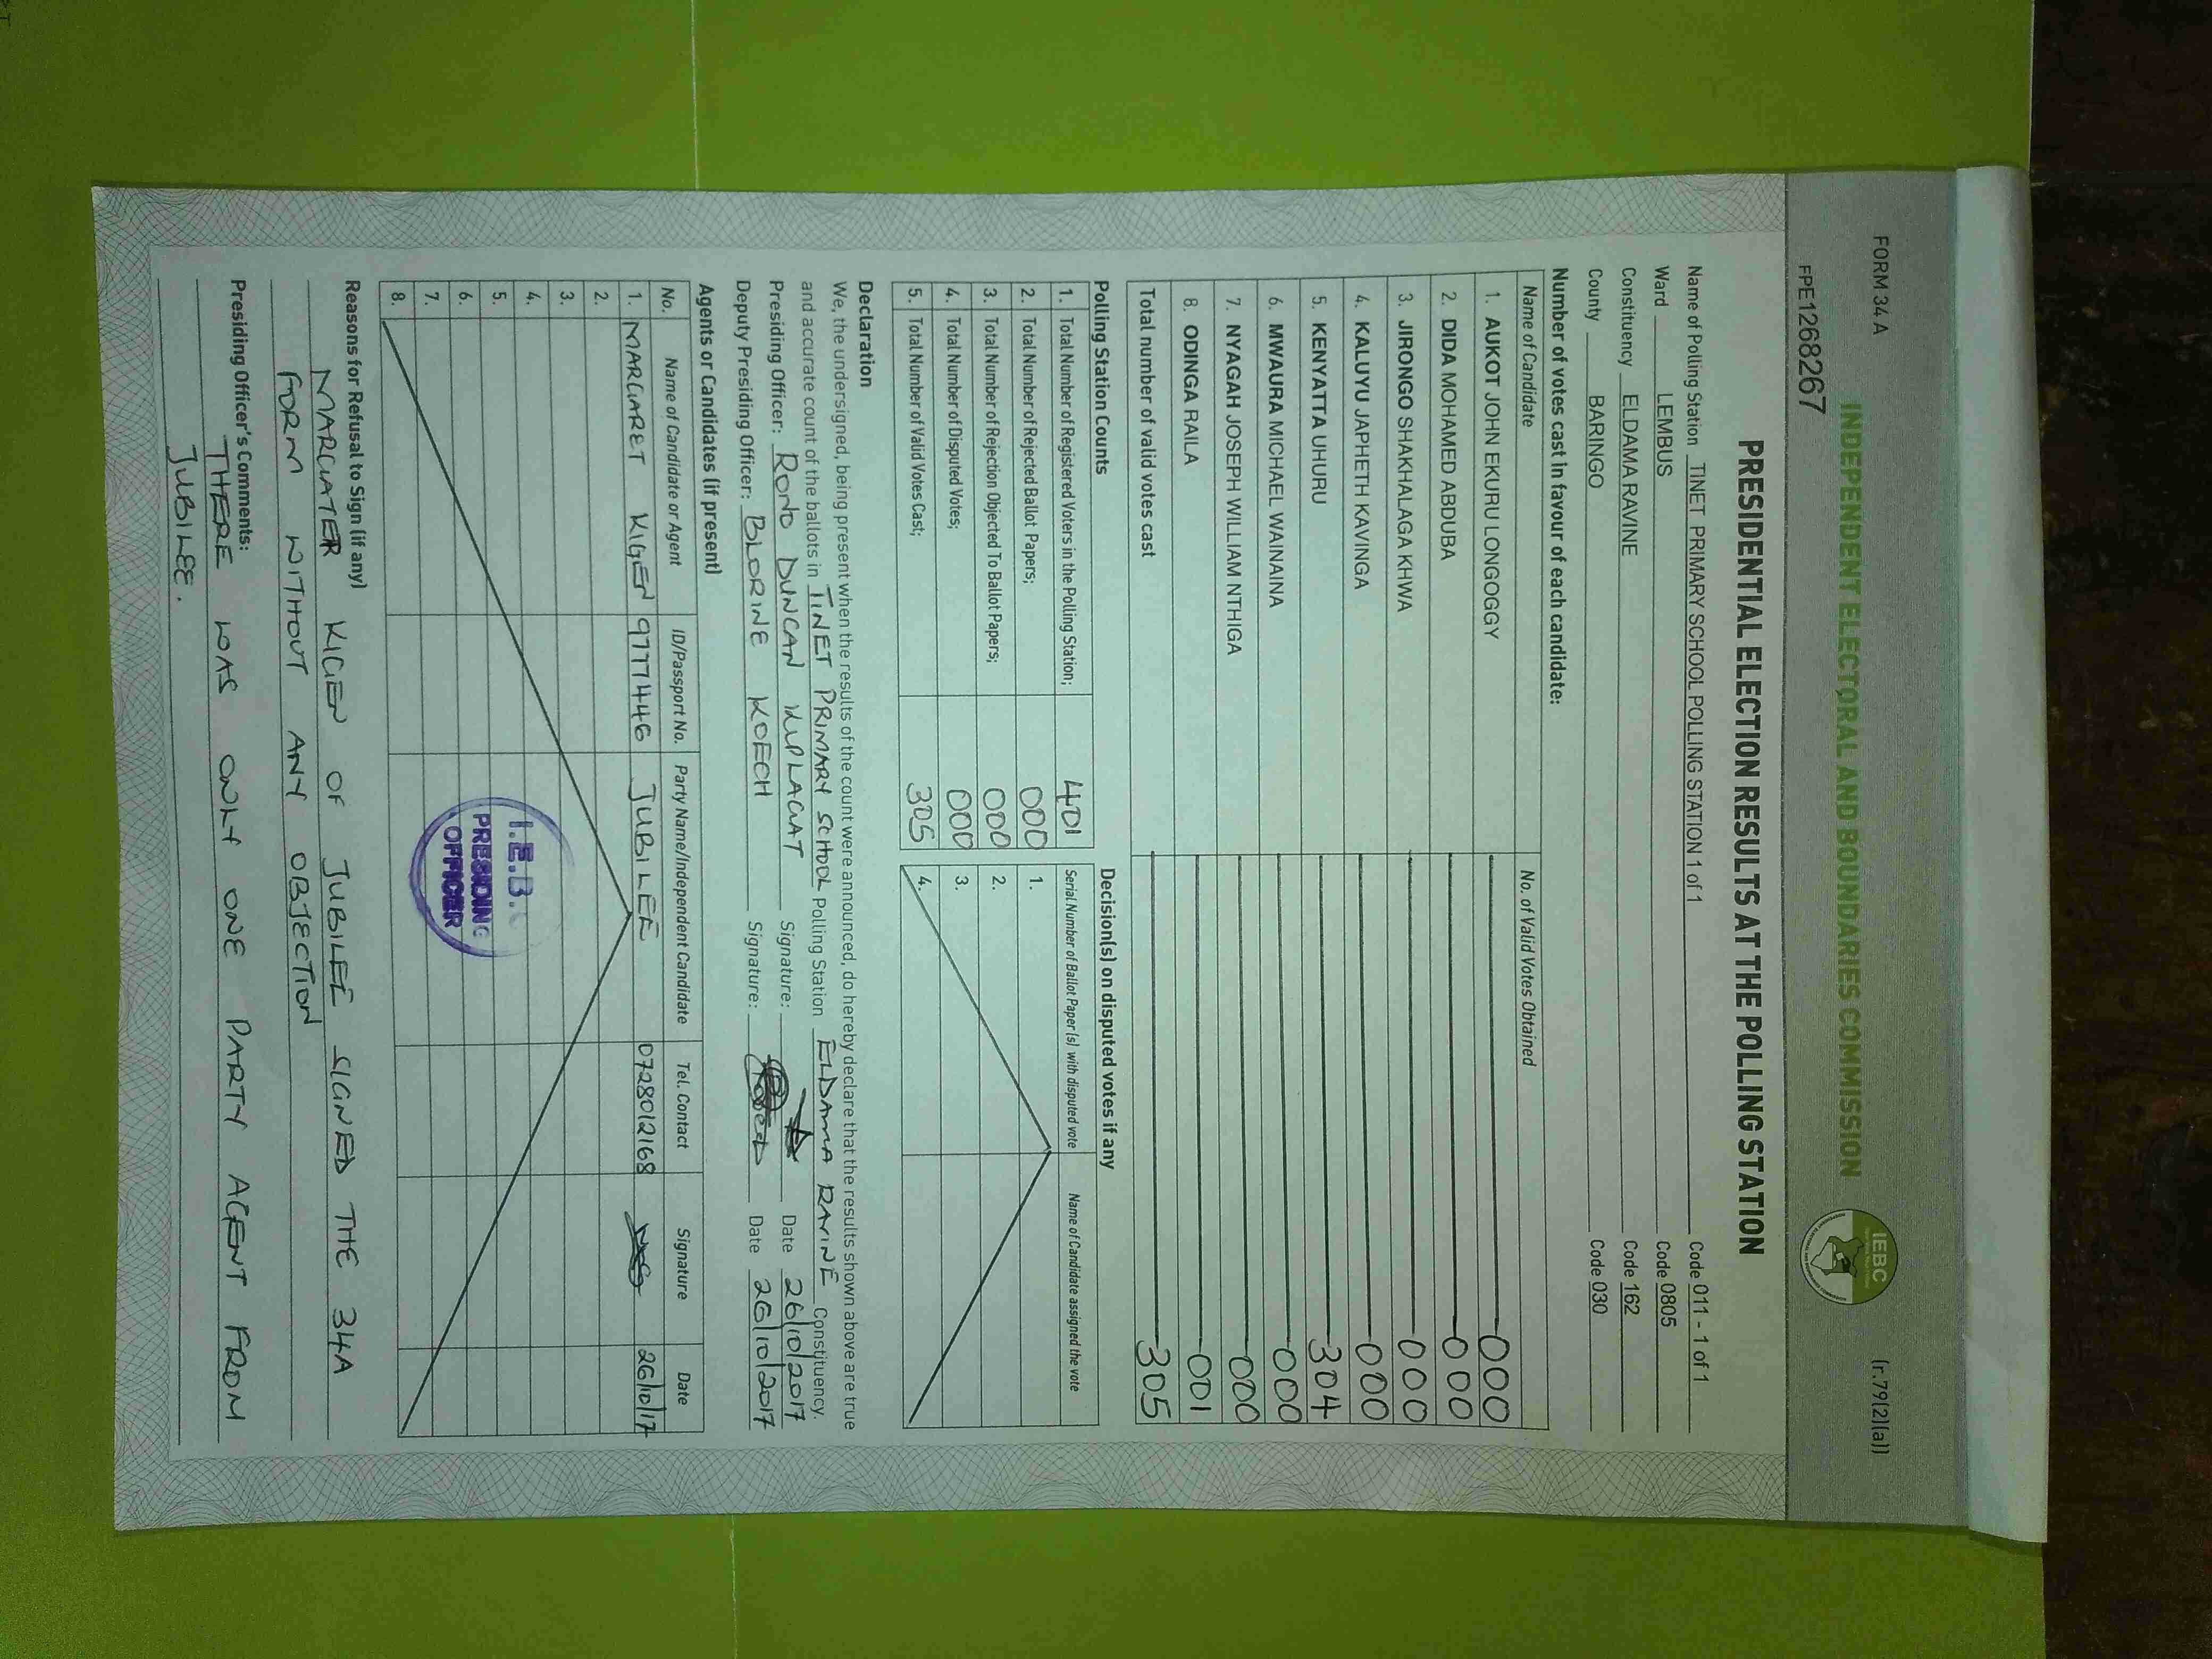 FORM 34 A
(r.79(2)(a))
INDEPENDENT ELECTORAL AND BOUNDARIES COMMISSION
IEBC
FPE1268267
PRESIDENTIAL ELECTION RESULTS AT THE POLLING STATION
Name of Polling Station TINET PRIMARY SCHOOL POLLING STATION 1 of 1 Code 011 - 1 of 1
Ward LEMBUS Code 0805
Constituency ELDAMA RAVINE Code 162
County BARINGO Code 030
Number of votes cast in favour of each candidate:
Name of Candidate No. of Valid Votes Obtained
1. AUKOT JOHN EKURU LONGOGGY 000
2. DIDA MOHAMED ABDUBA 000
3. JIRONGO SHAKHALAGA KHWA 000
4. KALUYU JAPHETH KAVINGA 000
5. KENYATTA UHURU 304
6. MWAURA MICHAEL WAINAINA 000
7. NYAGAH JOSEPH WILLIAM NTHIGA 000
8. ODINGA RAILA 001
Total number of valid votes cast 305
Polling Station Counts
1. Total Number of Registered Voters in the Polling Station; 401
2. Total Number of Rejected Ballot Papers; 000
3. Total Number of Rejection Objected To Ballot Papers; 000
4. Total Number of Disputed Votes; 000
5. Total Number of Valid Votes Cast; 305
Decision(s) on disputed votes if any
Serial Number of Ballot Paper(s) with disputed vote Name of Candidate assigned the vote
1.
2.
3.
4.
Declaration
We, the undersigned, being present when the results of the count were announced, do hereby declare that the results shown above are true
and accurate count of the ballots in TINET PRIMARY SCHOOL Polling Station ELDAMA RAVINE Constituency.
Presiding Officer: RONO DUNCAN KIPLAGAT Signature: Date 26/10/2017
Deputy Presiding Officer: BLORINE KOECH Signature: Date 26/10/2017
Agents or Candidates (if present)
No. Name of Candidate or Agent ID/Passport No. Party Name/Independent Candidate Tel. Contact Signature Date
1. MARGARET KIGEN 9777446 JUBILEE 0728012168 26/10/17
2.
3.
4.
5.
6.
7.
8.
I.E.B.C
PRESIDING
OFFICER
Reasons for Refusal to Sign (if any)
MARGATER KIGEN OF JUBILEE SIGNED THE 34A
FORM WITHOUT ANY OBJECTION
Presiding Officer's Comments:
THERE WAS ONLY ONE PARTY AGENT FROM
JUBILEE.